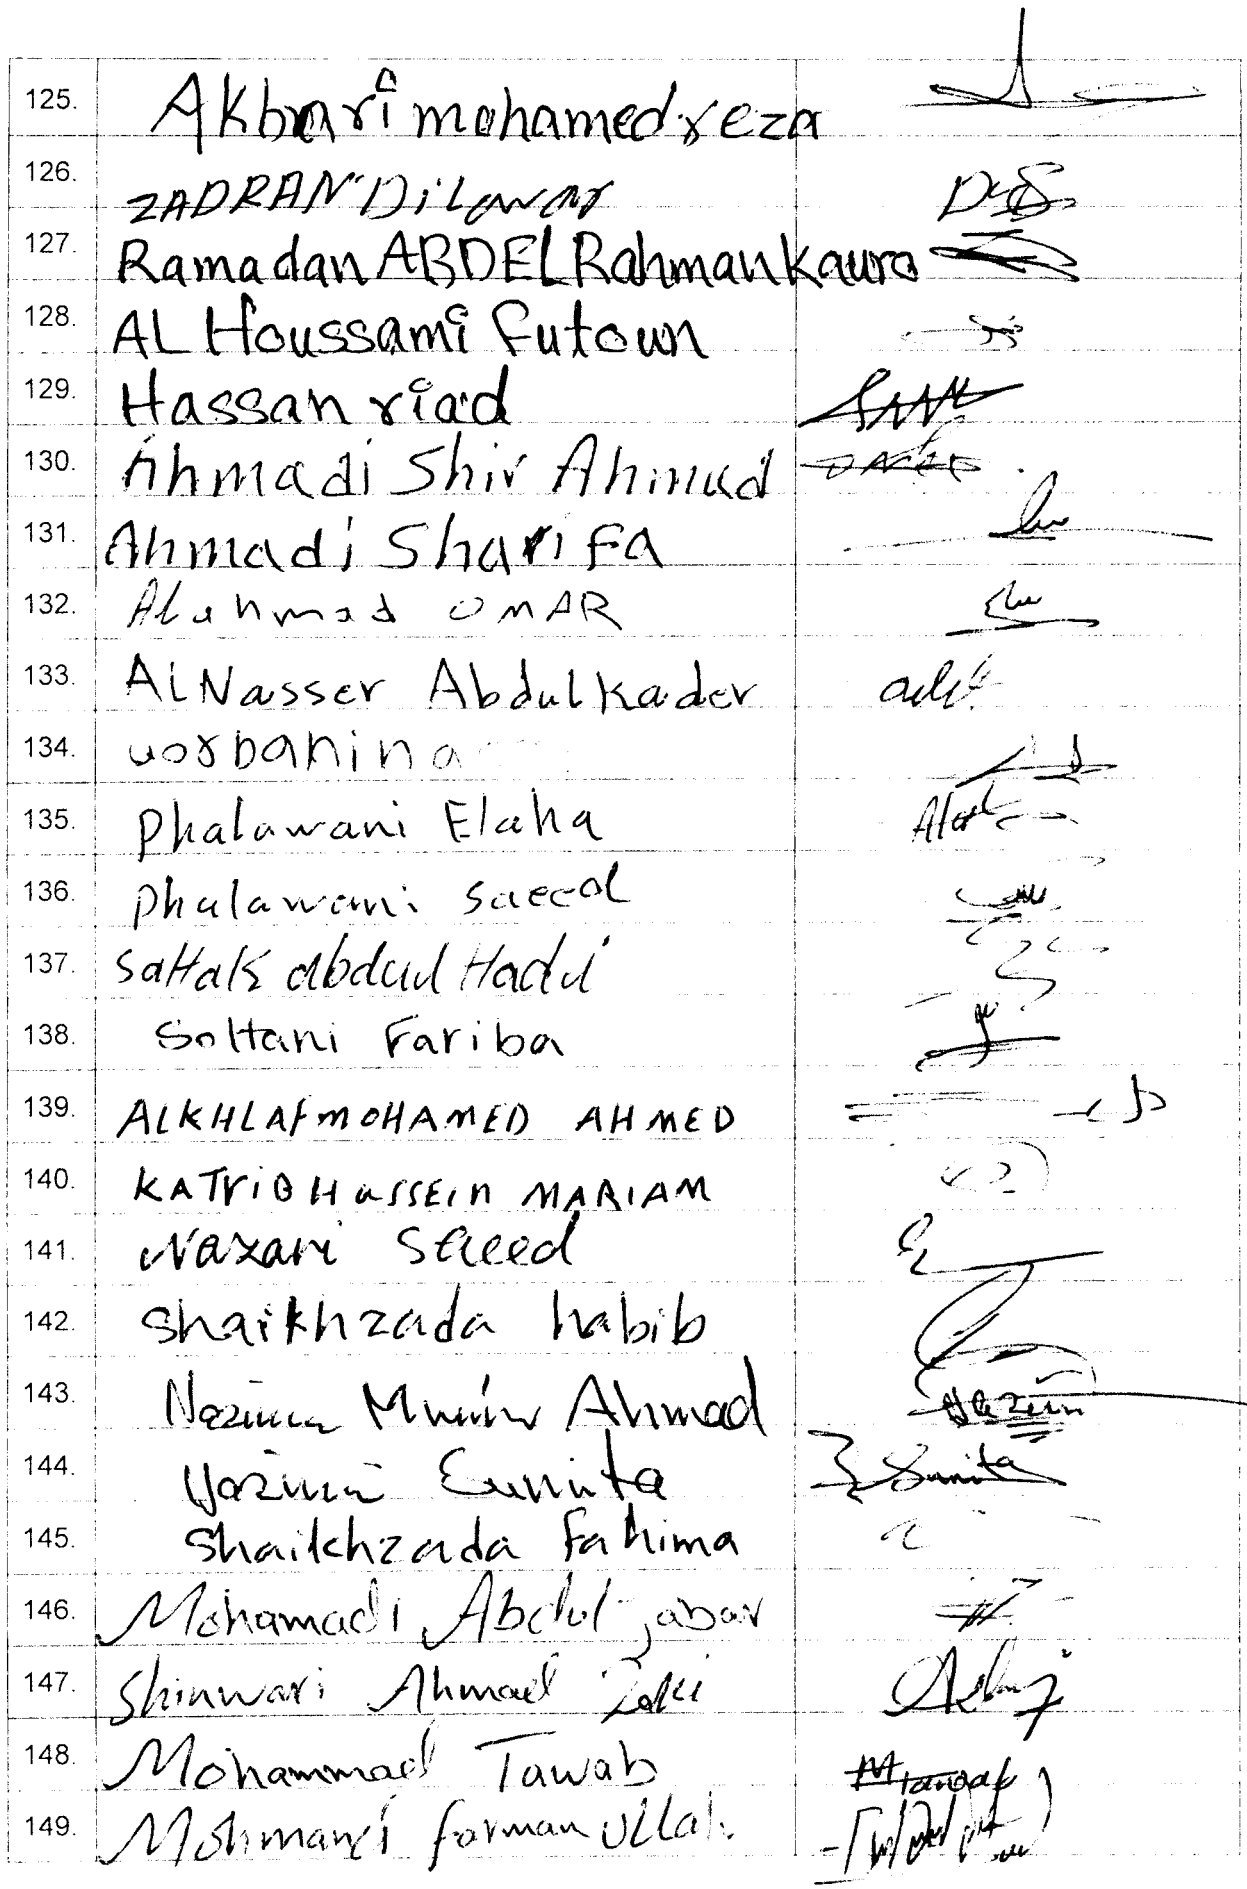 125. Akbari mohamed reza
126. ZADRAN Dilawar
127. Ramadan ABDEL Rahman Kaura
128. AL Houssami Futoun
129. Hassan riad
130. Ahmadi Shir Ahmad
131. Ahmadi Sharifa
132. Alahmad OMAR
133. AlNasser Abdulkader
134.
135. Phalawani Elaha
136. Phalawani Saeed
137. Sahak abdul Hadi
138. Soltani Fariba
139. ALKHLAF MOHAMED AHMED
140. HUSSEIN MARIAM
141. Nazari Saeed
142. Shaikhzada habib
143. Munir Ahmad Nazim
144. Sunita Sunita
145. Shaikhzada Fahima
146. Mohamadi Abdul jabar
147. Shinwari Ahmad Zaki
148. Mohammad Tawab
149. Mohmand farman Ullah